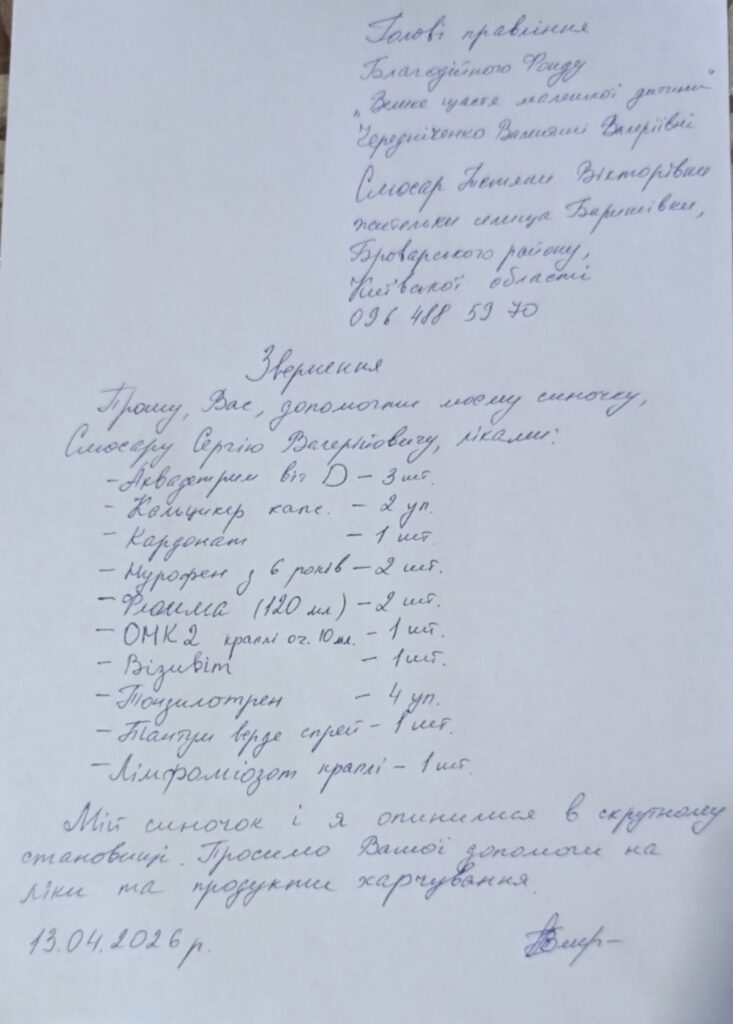 Голові правління
Благодійного Фонду
"Велике щастя маленької дитини"
Чередніченко Валентині Валеріївні
Слюсар Тетяни Вікторівни
жительки селища Баришівки,
Броварського району,
Київської області
096 488 59 70
Звернення
Прошу, Вас, допомогти моєму синочку,
Слюсару Сергію Валерійовичу, ліками:
- Аквадетрим віт D - 3 шт.
- Кальцикер капс. - 2 уп.
- Кардонат - 1 шт.
- Нурофен з 6 років - 2 шт.
- (120 мл) - 2 шт.
- ОМК2 краплі оч. 10мл. - 1 шт.
- Візивіт - 1 шт.
- Тонзилотрен - 4 уп.
- Тантум верде спрей - 1 шт.
- Лімфоміозот краплі - 1 шт.
Мій синочок і я опинилися в скрутному
становищі. Просимо Вашої допомоги на
ліки та продукти харчування.
13.04.2026 р.